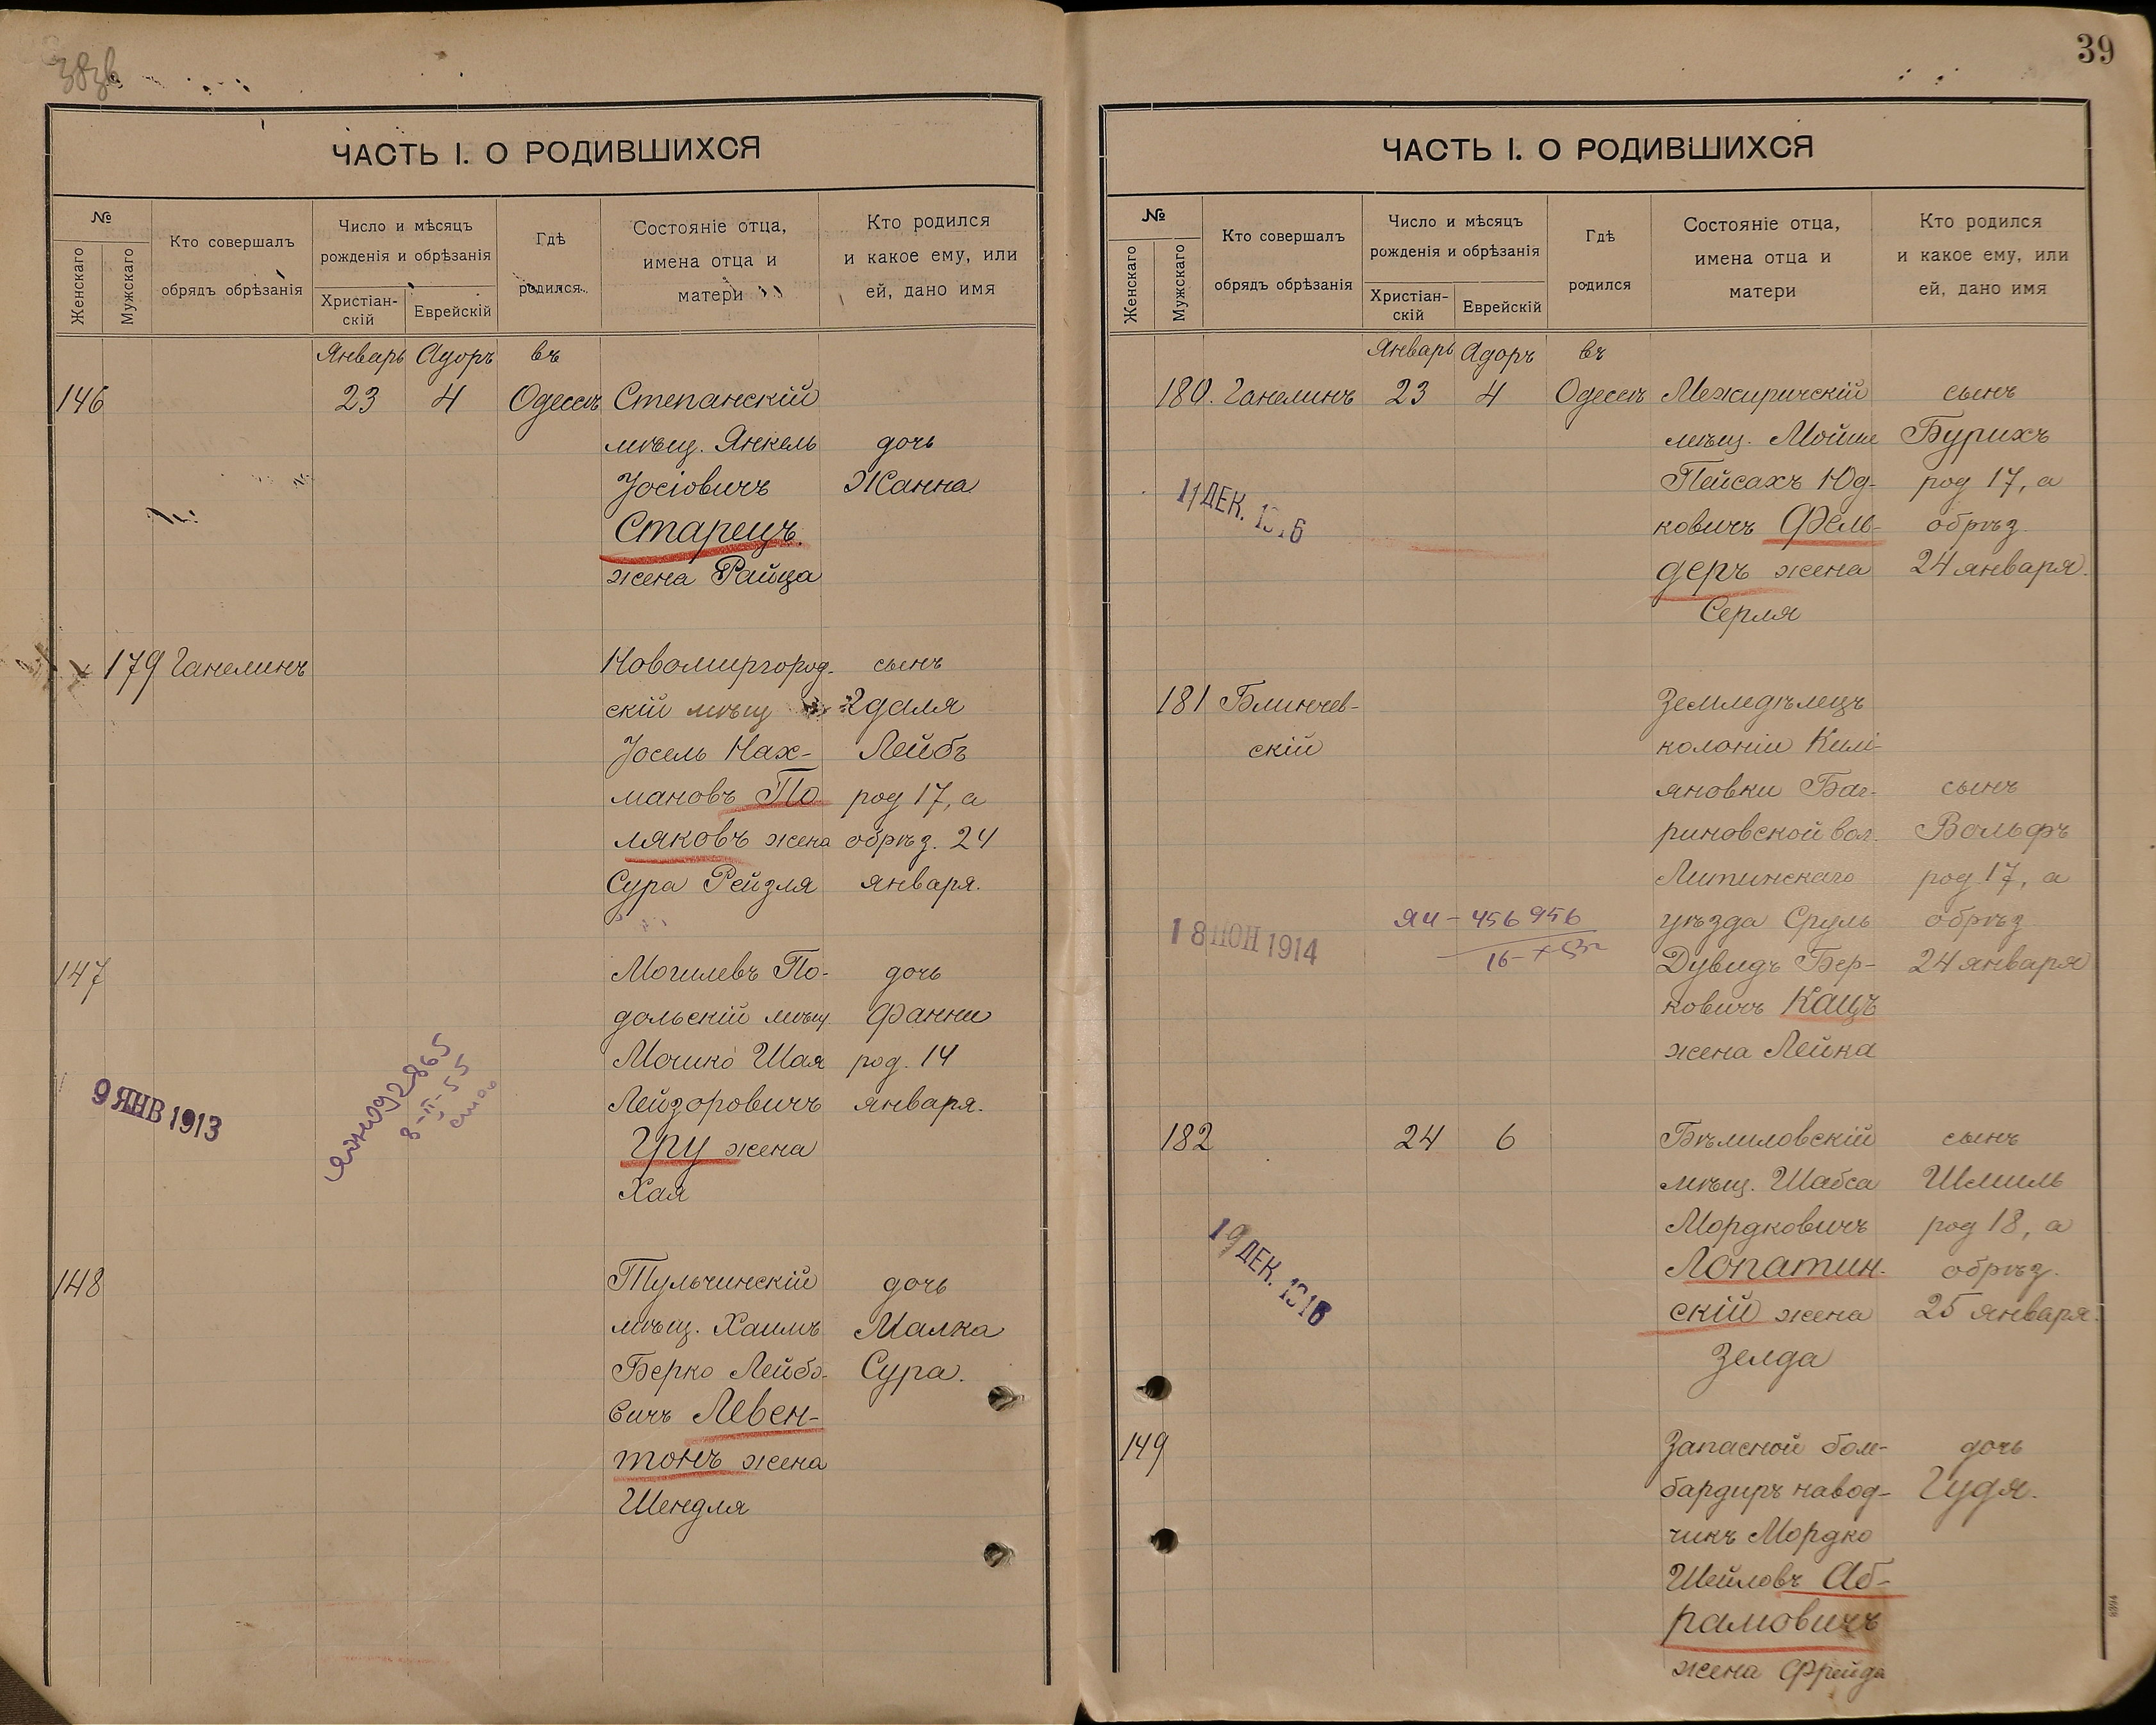 ЧАСТЬ I. О РОДИВШИХСЯ
№
Женскаго
Мужскаго
Кто совершалъ
обрядъ обрѣзанія
Число и мѣсяцъ
рожденія и обрѣзанія
Христіан-
скій
Еврейскій
Гдѣ
родился
Состояніе отца,
имена отца и
матери
Кто родился
и какое ему, или
ей, дано имя
Январь Адоръ въ
146 23 4 Одессѣ Степанскій
мѣщ. Янкель дочь
Іосіовичъ Жанна
Старецъ.
жена Райца
179 Ганелинъ Новомиргород- сынъ
скій мѣщ Гдаля
Іосель Нах- Лейбъ
мановъ По род 17, а
ляковъ жена обрѣз. 24
Сура Рейзля января.
147 Могилевъ По- дочь
дольскій мѣщ. Фанни
Мошко Шая род. 14
Лейзоровичъ января.
9 ЯНВ 1913
092865
8-II-55
Гру жена
Хая
148 Тульчинскій дочь
мѣщ. Хаимъ Малка
Берко Лейбо- Сура.
вичъ Левен-
тонъ жена
Шендля
39
ЧАСТЬ I. О РОДИВШИХСЯ
№
Женскаго
Мужскаго
Кто совершалъ
обрядъ обрѣзанія
Число и мѣсяцъ
рожденія и обрѣзанія
Христіан-
скій
Еврейскій
Гдѣ
родился
Состояніе отца,
имена отца и
матери
Кто родился
и какое ему, или
ей, дано имя
Январь Адоръ въ
180. Ганелинъ 23 4 Одессѣ Межиричскій сынъ
мѣщ. Мойше Бурихъ
Пейсахъ Юд- род 17, а
11 ДЕК. 1916
ковичъ Фель- обрѣз
деръ жена 24 января.
Серля
181 Блинчев- Земледѣлецъ
скій колоніи Килі-
яновки Баг- сынъ
риновской вол. Вольфъ
Литинскаго род 17, а
18 ІЮН 1914
ЯЧ-456956
уѣзда Сруль обрѣз
Дувидъ Бер- 24 января
ковичъ Кацъ
жена Лейка
182 24 6 Бѣлиловскій сынъ
мѣщ. Шабса Шмиль
Мордковичъ род 18, а
19 ДЕК. 1916
Лопатин- обрѣз.
скій жена 25 января.
Зелда
149 Запасной бом- дочь
бардиръ навод- Гудя.
чикъ Мордко
Шейловъ Аб-
рамовичъ
жена Фрейда